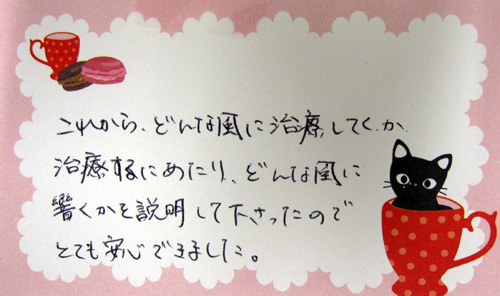 これから、どんな風に治療してくか
治療するにあたり、どんな風に
響くかを説明して下さったので
とても安心できました。